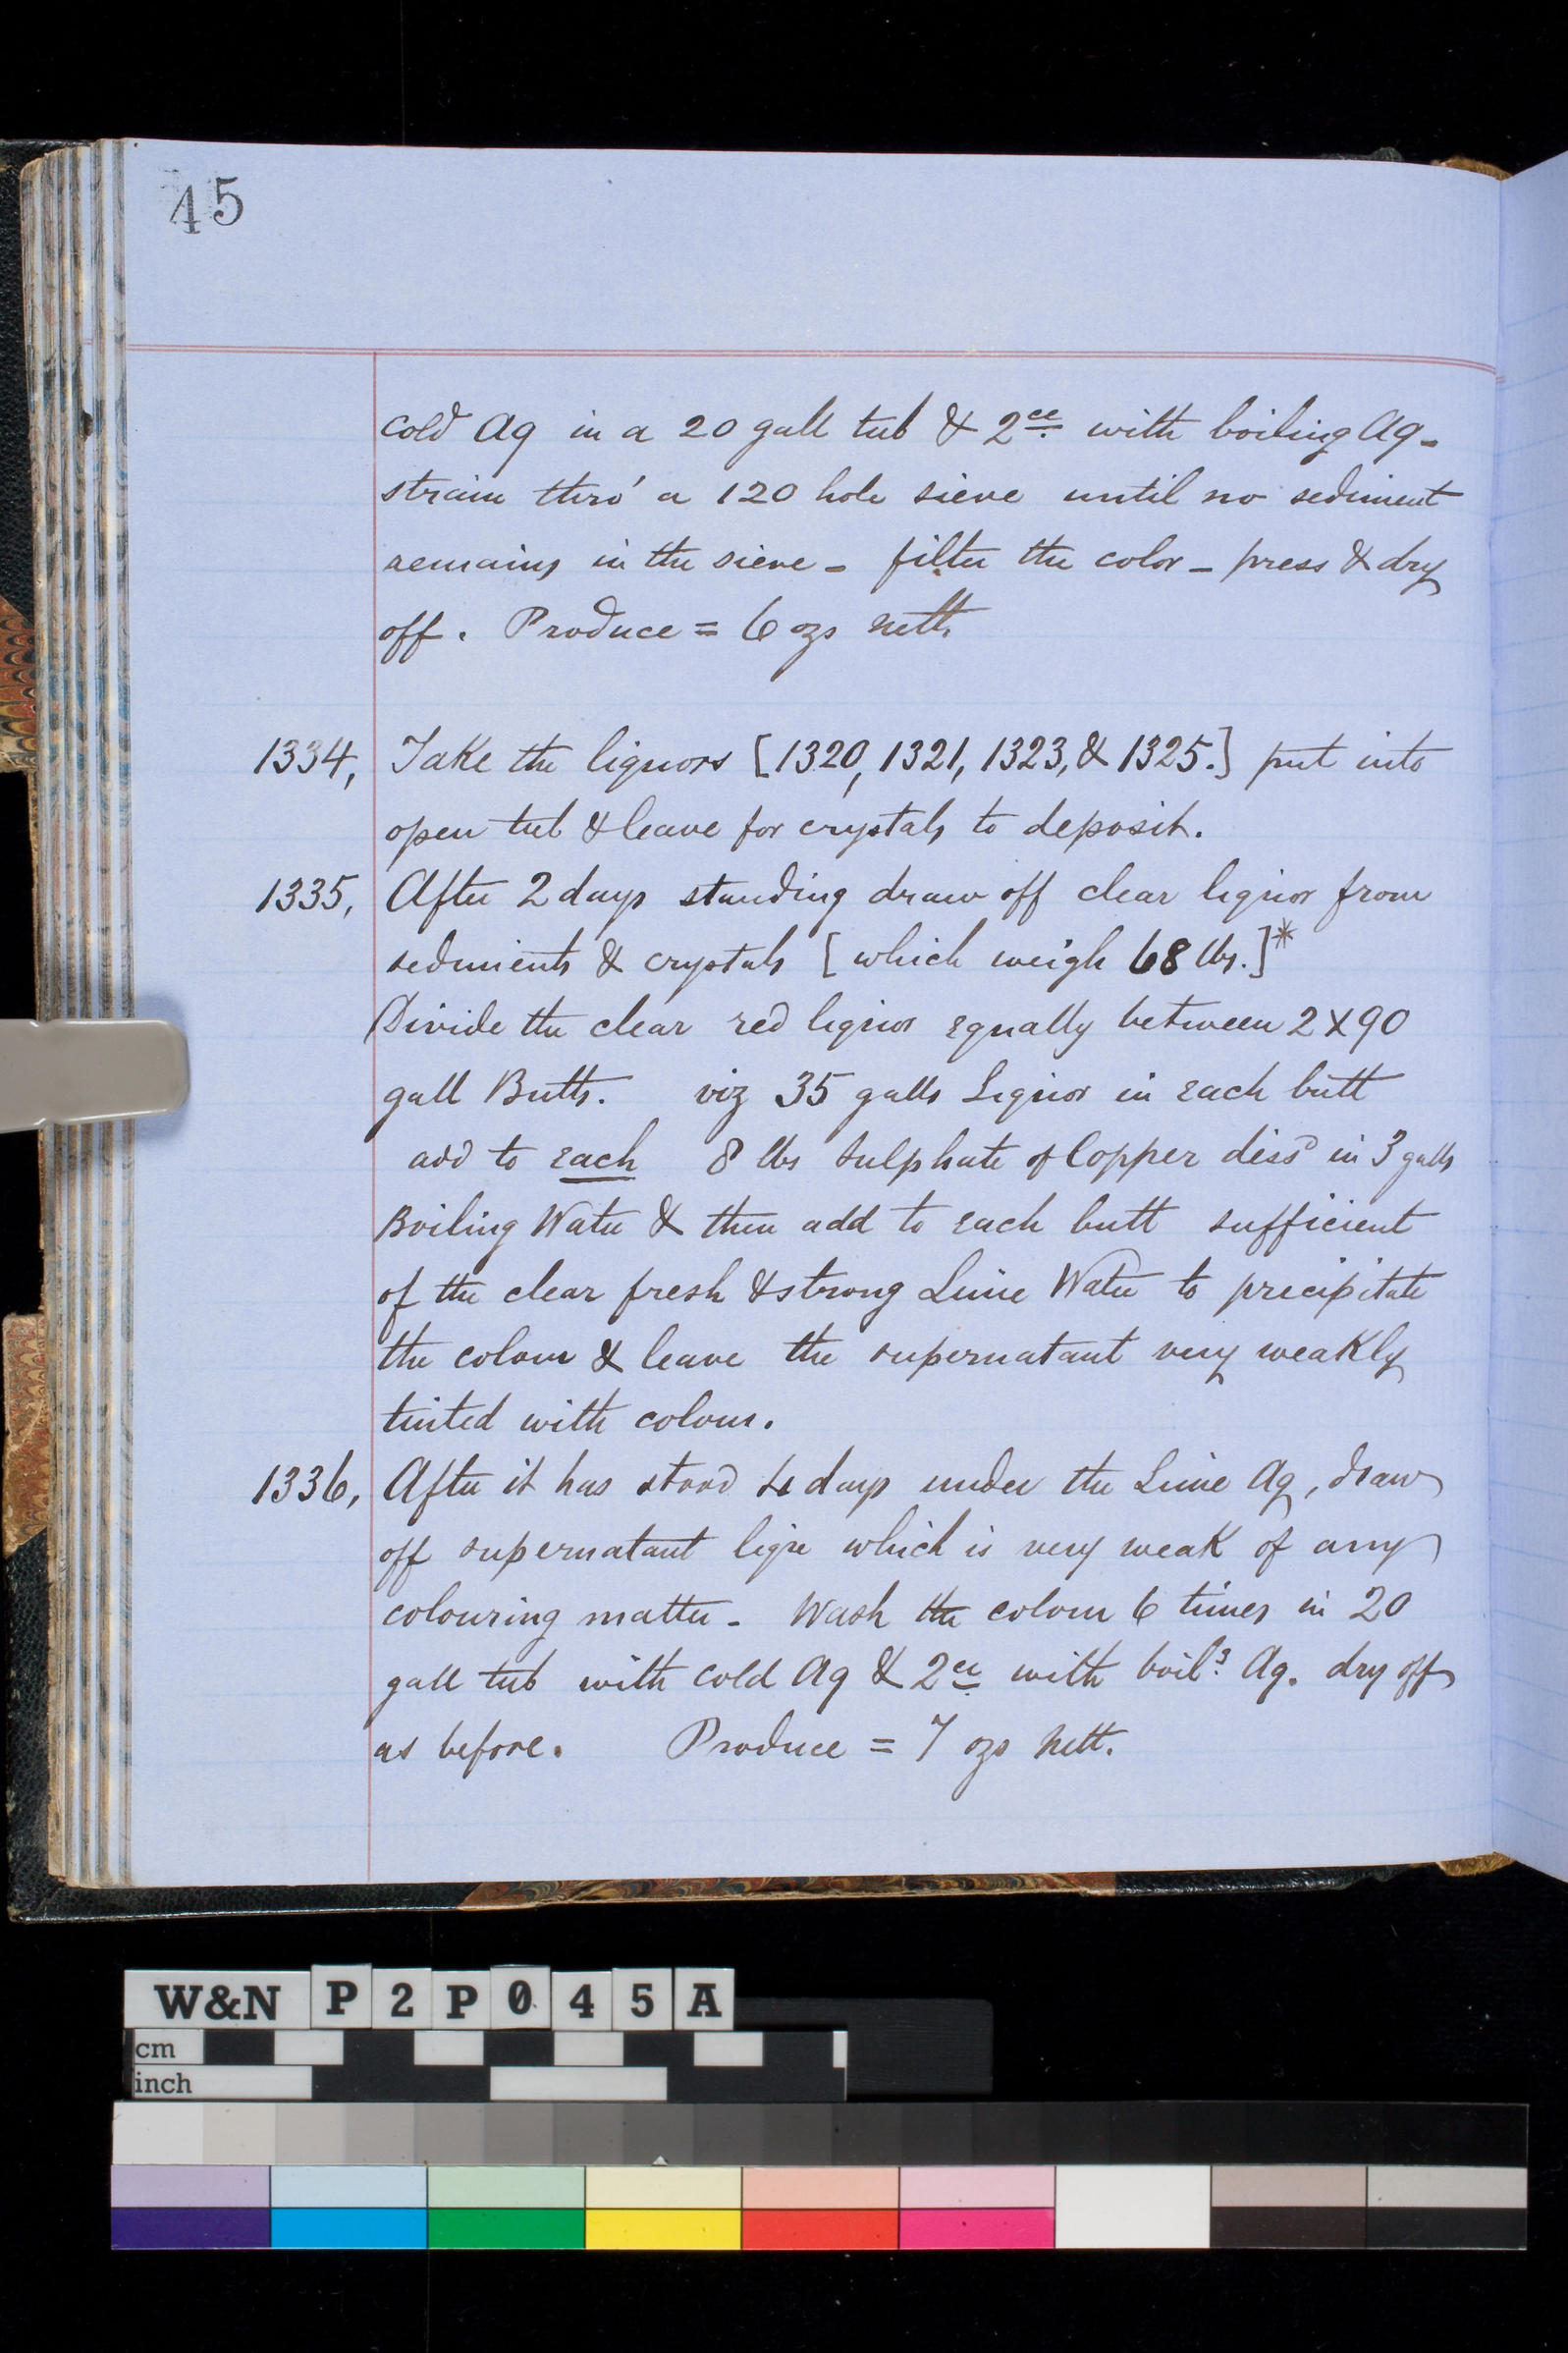 45
cold Aq in a 20 gall tub & 2ce with boiling Aq -
strain thro' a 120 hole sieve until no sediment
remains in the sieve - filter the color - press & dry
off. Produce = 6 ozs nett.
1334, Take the liquors [1320, 1321, 1323, & 1325.] put into
open tub & leave for crystals to deposit.
1335, After 2 days standing draw off clear liquor from
sediments & crystals [which weigh 68 lbs.]*
Divide the clear red liquor equally between 2 X 90
gall Butts. viz 35 galls Liquor in each butt
add to each 8 lbs Sulphate of Copper dissd in 3 galls
Boiling Water & then add to each butt sufficient
of the clear fresh & strong Lime Water to precipitate
the colour & leave the supernatant very weakly
tinted with colour.
1336, After it has stood 4 days under the Lime Aq, draw
off supernatant liqre which is very weak of any
colouring matter - Wash the colour 6 times in 20
gall tub with cold Aq & 2ce with boilg Aq. dry off
as before. Produce = 7 ozs nett.
W&N P2P045A
cm
inch